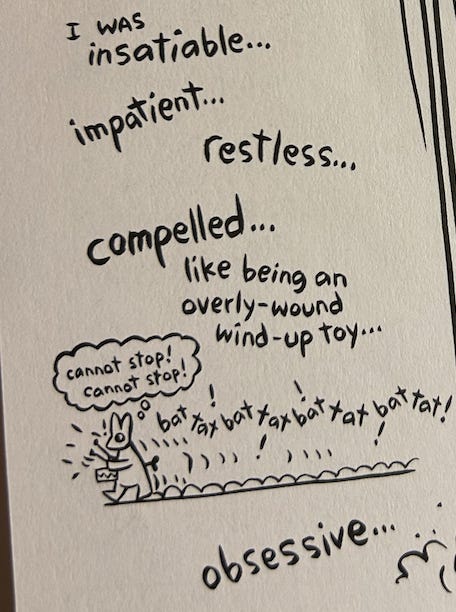 I WAS
insatiable...
impatient...
restless...
compelled...
like being an
overly-wound
wind-up toy...
cannot stop!
cannot stop!
bat tat bat tat bat tat bat tat!
obsessive...